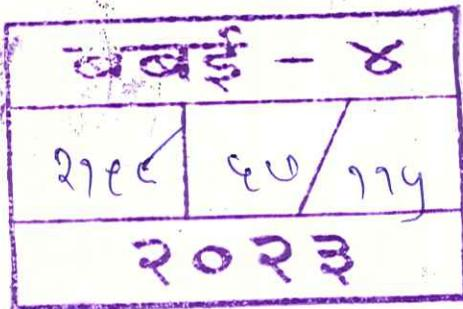 बबई - ४
२१९९ ५७/११५
२०२३